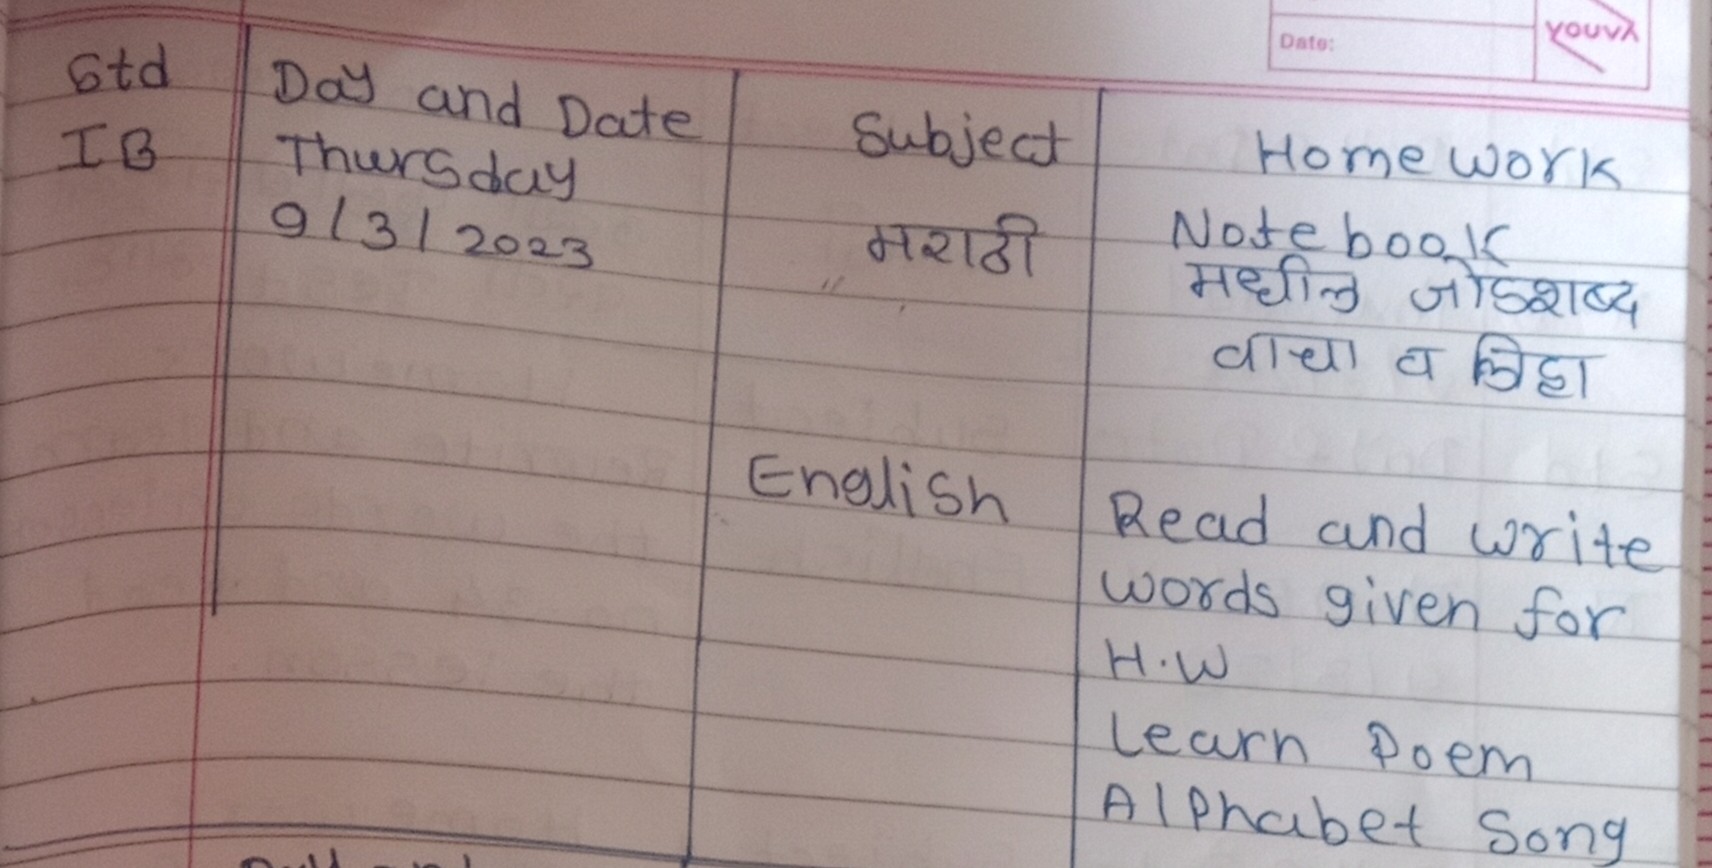 Date:
YOUVA
Std
Day and Date
Subject
Home work
I B
Thursday
9/3/2023
मराठी
Notebook
मधील जोडशब्द
वाचा व लिहा
English
Read and write
words given for
H.W
Learn Poem
Alphabet Song